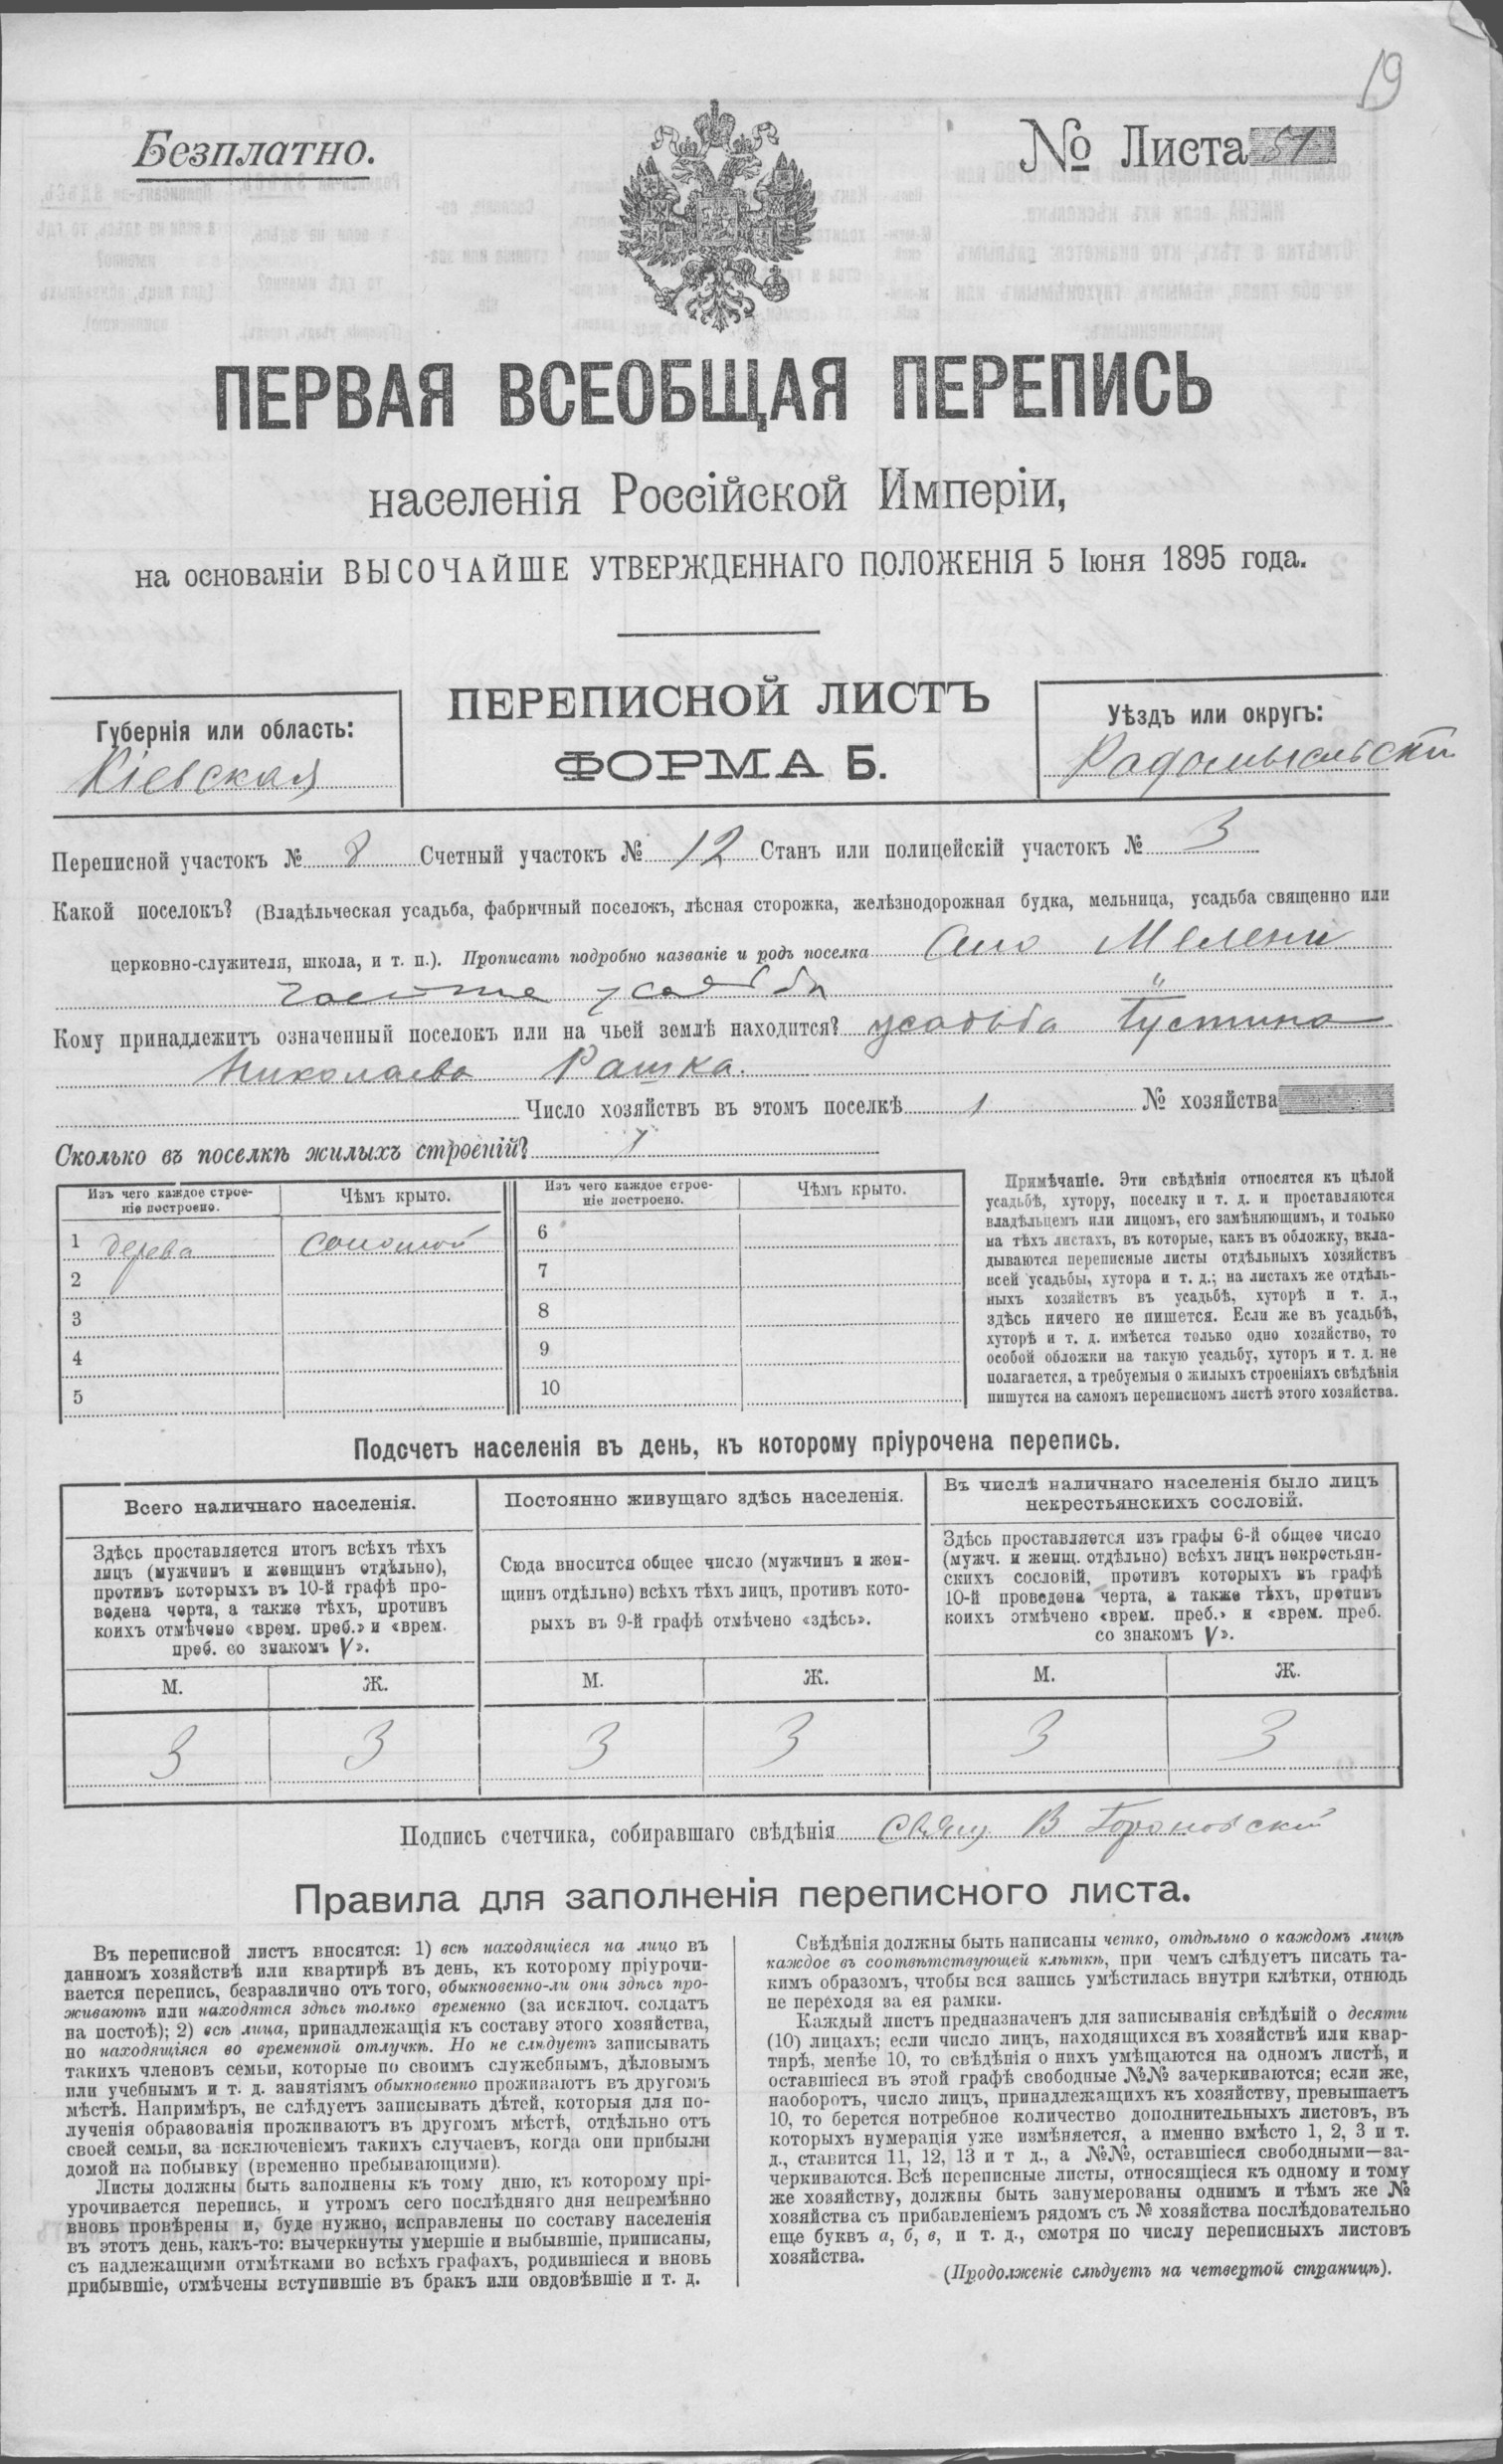 19
Безплатно.
№ Листа 51
ПЕРВАЯ ВСЕОБЩАЯ ПЕРЕПИСЬ
населенія Россійской Имперіи,
на основаніи ВЫСОЧАЙШЕ УТВЕРЖДЕННАГО ПОЛОЖЕНІЯ 5 Іюня 1895 года.
Губернія или область:
Кіевская
ПЕРЕПИСНОЙ ЛИСТЪ
ФОРМА Б.
Уѣздъ или округъ:
Радомысльскій
Переписной участокъ № 8 Счетный участокъ № 12 Станъ или полицейскій участокъ № 3
Какой поселокъ? (Владѣльческая усадьба, фабричный поселокъ, лѣсная сторожка, желѣзнодорожная будка, мельница, усадьба священно или
церковно-служителя, школа, и т. п.). Прописать подробно названіе и родъ поселка Село Мелени
усадьба
Кому принадлежитъ означенный поселокъ или на чьей землѣ находится? усадьба Густина
Николаева Рашка.
Число хозяйствъ въ этомъ поселкѣ 1 № хозяйства
Сколько въ поселкѣ жилыхъ строеній? 1
Изъ чего каждое строе-
ніе построено.
Чѣмъ крыто.
Изъ чего каждое строе-
ніе построено.
Чѣмъ крыто.
1 дерева соломой 6
2 7
3 8
4 9
5 10
Примѣчаніе. Эти свѣдѣнія относятся къ цѣлой
усадьбѣ, хутору, поселку и т. д. и проставляются
владѣльцемъ или лицомъ, его замѣняющимъ, и только
на тѣхъ листахъ, въ которые, какъ въ обложку, вкла-
дываются переписные листы отдѣльныхъ хозяйствъ
всей усадьбы, хутора и т. д.; на листахъ же отдѣль-
ныхъ хозяйствъ въ усадьбѣ, хуторѣ и т. д.,
здѣсь ничего не пишется. Если же въ усадьбѣ,
хуторѣ и т. д. имѣется только одно хозяйство, то
особой обложки на такую усадьбу, хуторъ и т. д. не
полагается, а требуемыя о жилыхъ строеніяхъ свѣдѣнія
пишутся на самомъ переписномъ листѣ этого хозяйства.
Подсчетъ населенія въ день, къ которому пріурочена перепись.
Всего наличнаго населенія.
Здѣсь проставляется итогъ всѣхъ тѣхъ
лицъ (мужчинъ и женщинъ отдѣльно),
противъ которыхъ въ 10-й графѣ про-
ведена черта, а также тѣхъ, противъ
коихъ отмѣчено «врем. преб.» и «врем.
преб. со знакомъ V».
Постоянно живущаго здѣсь населенія.
Сюда вносится общее число (мужчинъ и жен-
щинъ отдѣльно) всѣхъ тѣхъ лицъ, противъ кото-
рыхъ въ 9-й графѣ отмѣчено «здѣсь».
Въ числѣ наличнаго населенія было лицъ
некрестьянскихъ сословій.
Здѣсь проставляется изъ графы 6-й общее число
(мужч. и женщ. отдѣльно) всѣхъ лицъ некрестьян-
скихъ сословій, противъ которыхъ въ графѣ
10-й проведена черта, а также тѣхъ, противъ
коихъ отмѣчено «врем. преб.» и «врем. преб.
со знакомъ V».
М. Ж. М. Ж. М. Ж.
3 3 3 3 3 3
Подпись счетчика, собиравшаго свѣдѣнія Свящ. В
Правила для заполненія переписного листа.
Въ переписной листъ вносятся: 1) всѣ находящіеся на лицо въ
данномъ хозяйствѣ или квартирѣ въ день, къ которому пріурочи-
вается перепись, безразлично отъ того, обыкновенно-ли они здѣсь про-
живаютъ или находятся здѣсь только временно (за исключ. солдатъ
на постоѣ); 2) всѣ лица, принадлежащія къ составу этого хозяйства,
но находящіяся во временной отлучкѣ. Но не слѣдуетъ записывать
такихъ членовъ семьи, которые по своимъ служебнымъ, дѣловымъ
или учебнымъ и т. д. занятіямъ обыкновенно проживаютъ въ другомъ
мѣстѣ. Напримѣръ, не слѣдуетъ записывать дѣтей, которыя для по-
лученія образованія проживаютъ въ другомъ мѣстѣ, отдѣльно отъ
своей семьи, за исключеніемъ такихъ случаевъ, когда они прибыли
домой на побывку (временно пребывающими).
Листы должны быть заполнены къ тому дню, къ которому прі-
урочивается перепись, и утромъ сего послѣдняго дня непремѣнно
вновь провѣрены и, буде нужно, исправлены по составу населенія
въ этотъ день, какъ-то: вычеркнуты умершіе и выбывшіе, приписаны,
съ надлежащими отмѣтками во всѣхъ графахъ, родившіеся и вновь
прибывшіе, отмѣчены вступившіе въ бракъ или овдовѣвшіе и т. д.
Свѣдѣнія должны быть написаны четко, отдѣльно о каждомъ лицѣ
каждое въ соотвѣтствующей клѣткѣ, при чемъ слѣдуетъ писать та-
кимъ образомъ, чтобы вся запись умѣстилась внутри клѣтки, отнюдь
не переходя за ея рамки.
Каждый листъ предназначенъ для записыванія свѣдѣній о десяти
(10) лицахъ; если число лицъ, находящихся въ хозяйствѣ или квар-
тирѣ, менѣе 10, то свѣдѣнія о нихъ умѣщаются на одномъ листѣ, и
оставшіеся въ этой графѣ свободные №№ зачеркиваются; если же,
наоборотъ, число лицъ, принадлежащихъ къ хозяйству, превышаетъ
10, то берется потребное количество дополнительныхъ листовъ, въ
которыхъ нумерація уже измѣняется, а именно вмѣсто 1, 2, 3 и т.
д., ставится 11, 12, 13 и т д., а №№, оставшіеся свободными—за-
черкиваются. Всѣ переписные листы, относящіеся къ одному и тому
же хозяйству, должны быть занумерованы однимъ и тѣмъ же №
хозяйства съ прибавленіемъ рядомъ съ № хозяйства послѣдовательно
еще буквъ а, б, в, и т. д., смотря по числу переписныхъ листовъ
хозяйства.
(Продолженіе слѣдуетъ на четвертой страницѣ).